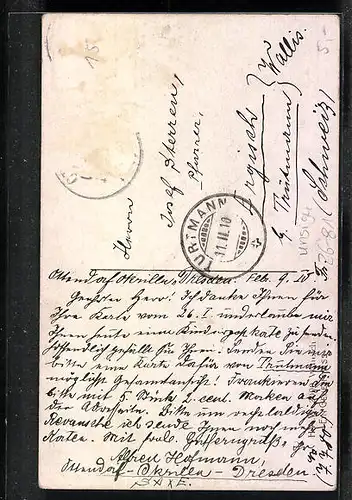 15
5-
Herrn
Josef Sterren,
Pfarrer,
Ergisch
b. Turtmann
Wallis.
(Schweiz)
TURTMANN
11.II.10
Ottendorf-Okrilla, Dresden. Feb. 9. 10
Geehrter Herr! Ich danke Ihnen für
Ihre Karte vom 26. I. und erlaube mir
Ihnen heute eine Kinderpostkarte zu senden.
Hoffentlich gefällt sie Ihnen. Senden Sie mir
bitte eine Karte dafür von Turtmann
möglichst Gesamtansicht! Frankieren Sie
bitte mit 5 Stück 2 cent. Marken auf
der Adreßseite. Bitte um recht baldige
Revanche ich sende Ihnen noch mehr
Karten. Mit frdl. Gruß,
Alfred Hofmann,
Ottendorf-Okrilla-Dresden